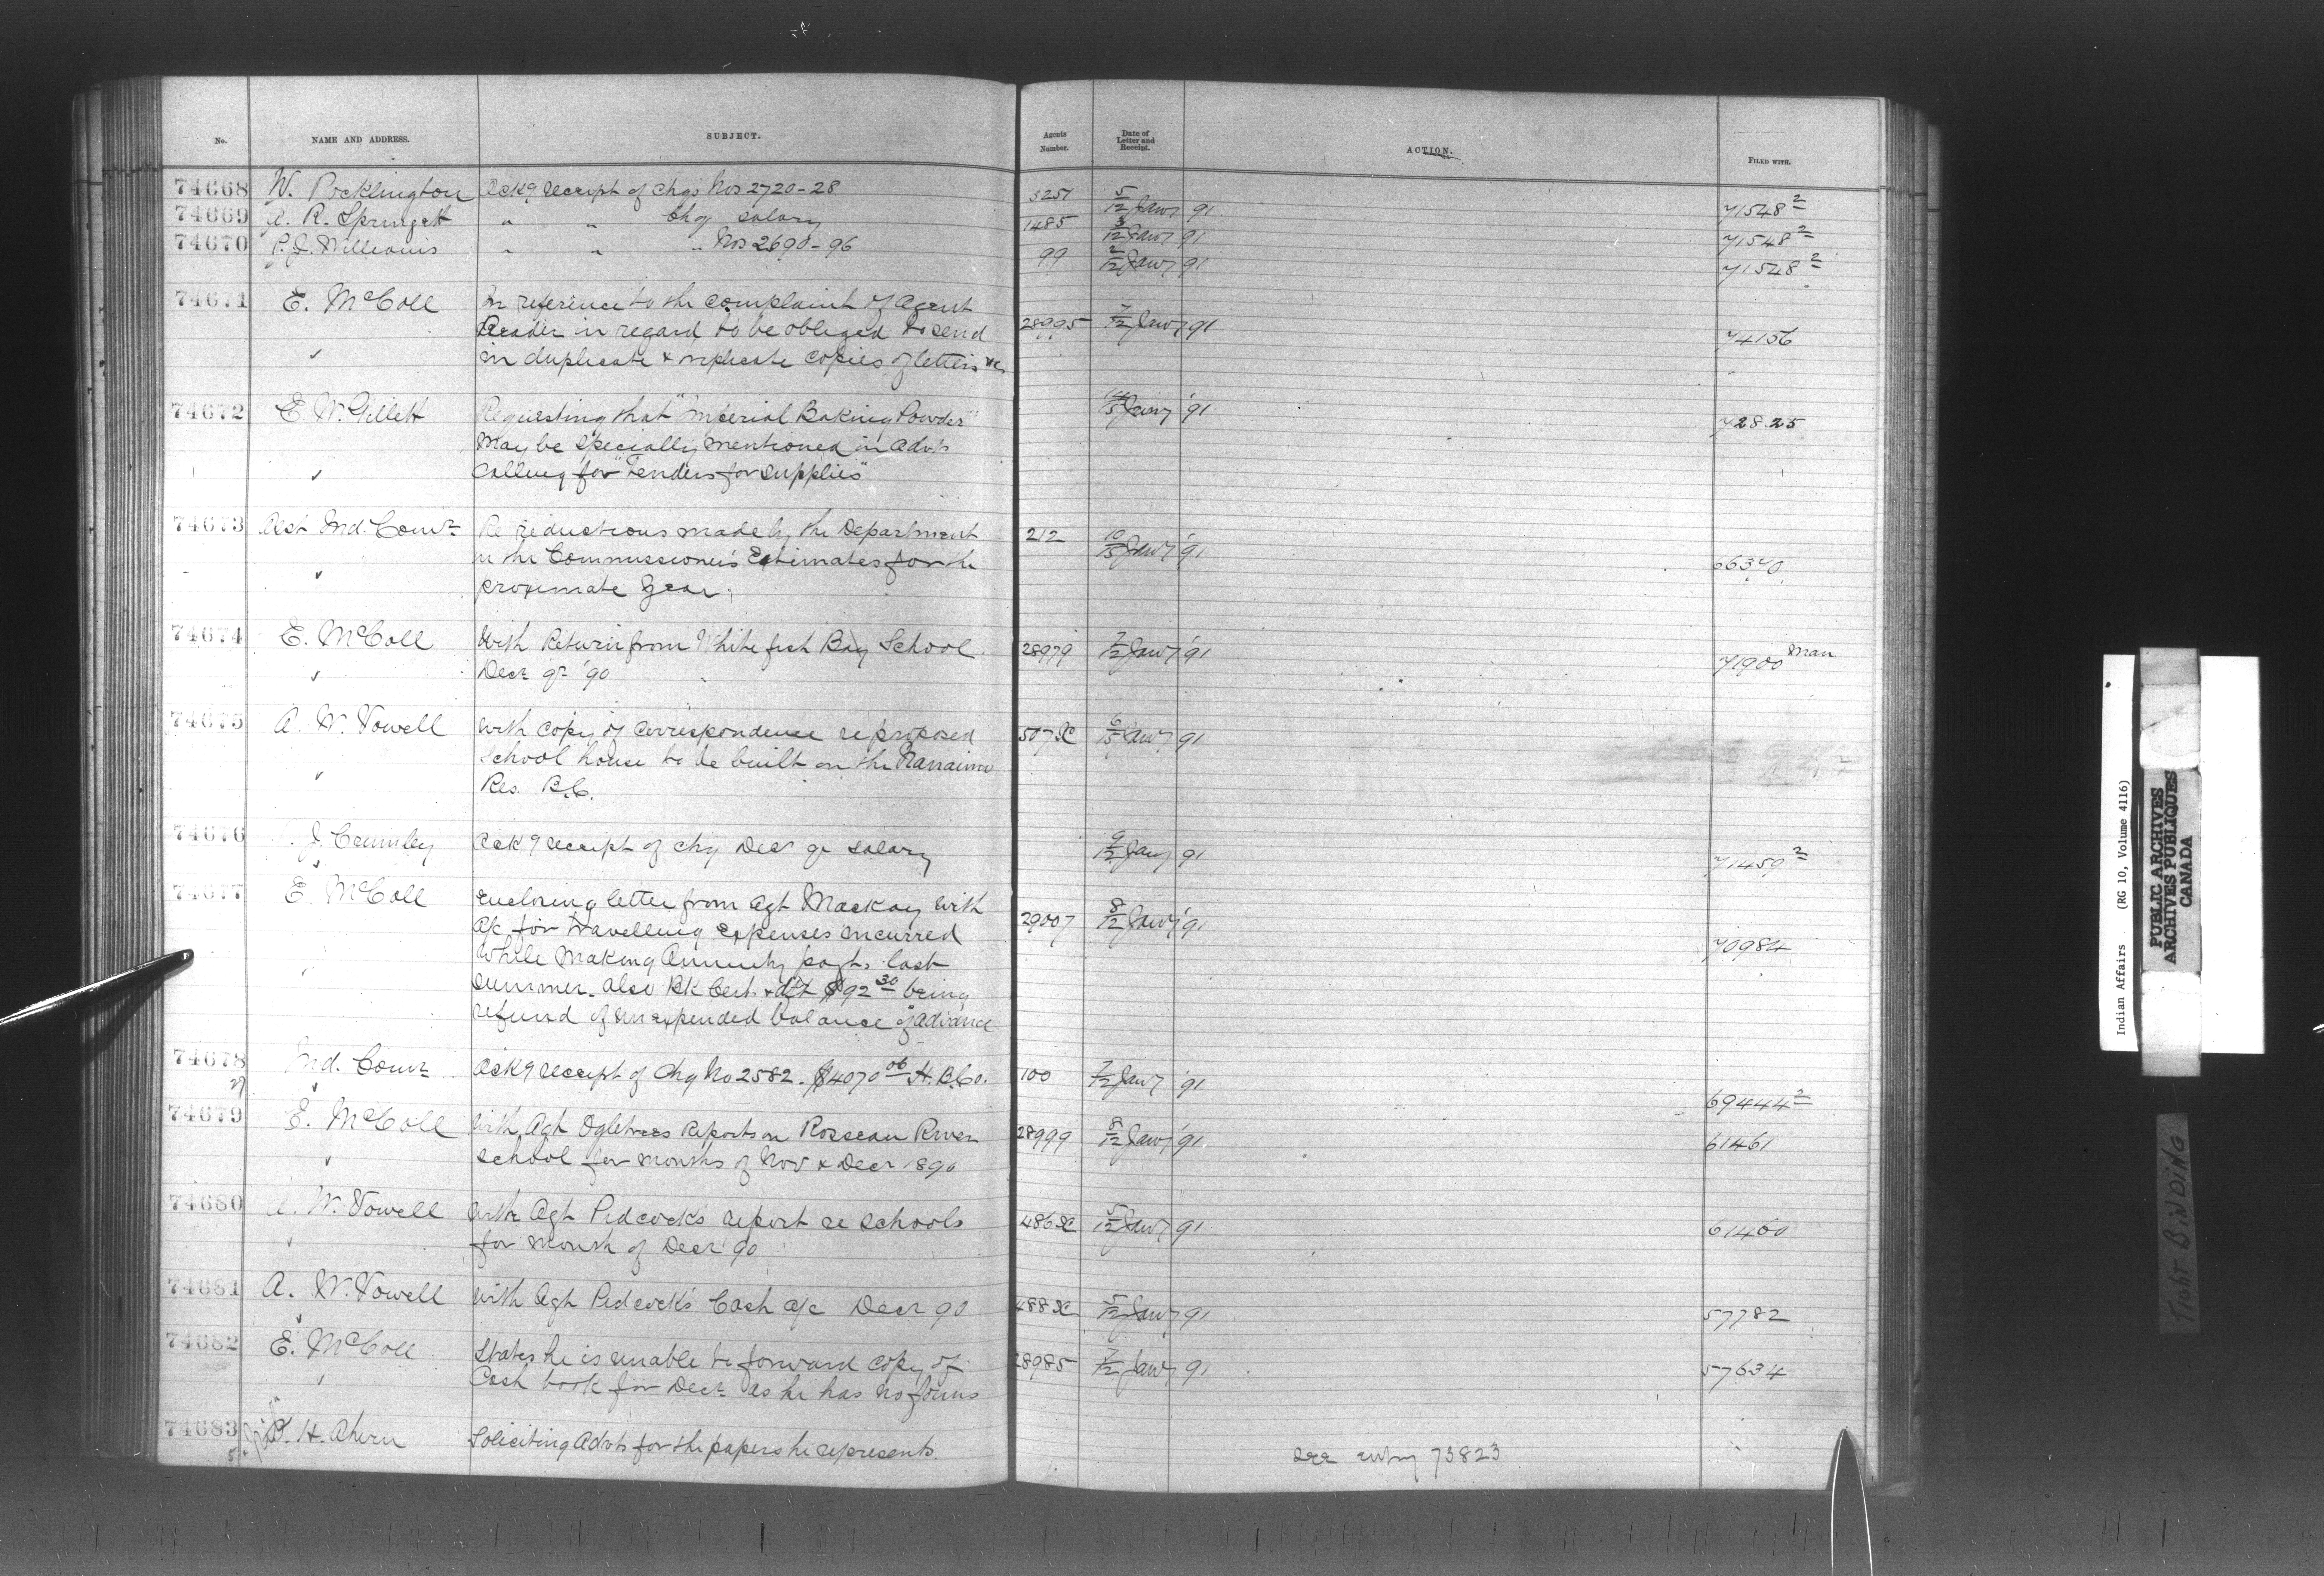 No. NAME AND ADDRESS. SUBJECT. Agents Number. Date of Letter and Receipt. ACTION. FILED WITH.
74668 W. Pocklington Ack'g receipt of chqs Nos 2720-28 3251 5/12 Jany 91 71548 2
74669 A. R. Springett " " chq salary 1485 /12 Jany 91 71548 2
74670 P. J. Williams " " " Nos 2690-96 99 2/12 Jany 91 71548 2
74671 E. McColl In reference to the complaint of Agent
Reader in regard to be obliged to send 28995 7/12 Jany 91 74156
✓ in duplicate & triplicate copies of letters &c
74672 E. W. Gillett Requesting that "Imperial Baking Powder" /15 Jany '91 72825
may be specially mentioned in advts
✓ calling for "Tenders for supplies"
74673 Asst Ind. Comr Re reductions made by the Department 212 10/15 Jany '91
in the Commissioner's Estimates for the 66370
✓ proximate year
74674 E. McColl With Return from White fish Bay School 28979 7/12 Jany '91 71900 Man
✓ Decr qr '90
74675 A. W. Vowell With copy of correspondence re proposed 507 SC 6/15 Jany 91
✓ school house to be built on the Nanaimo
Res. B.C.
74676 J. Crumley Ack'g receipt of chq Decr qr salary 9/12 Jany 91 71459 2
74677 ✓ E. McColl Enclosing letter from Agt Mackay with
a/c for travelling expenses incurred 29007 8/12 Jany '91
while making Annuity payts. last 70984
summer. also Bk Cert. & dft $92 30 being
refund of unexpended balance of advance
74678 Ind. Comr Ack'g receipt of Chq No 2582 - $4070 06 H.B.Co. 100 7/12 Jany '91 69444 2
27 ✓
74679 E. McColl With Agt Ogletrees Reports on Rosseau River 28999 8/12 Jany '91 61461
✓ school for months of Nov & Decr 1890
74680 A. W. Vowell With Agt Pidcock's report re schools 486 SC 5/12 Jany 91 61460
✓ for month of Decr '90
74681 A. W. Vowell With Agt Pidcock's Cash a/c Decr 90 488 SC 5/12 Jany 91 57782
✓
74682 E. McColl States he is unable to forward copy of 28985 7/12 Jany 91 57634
Cash book for Decr as he has no forms
74683 H. Ahern Soliciting Advts for the papers he represents. See entry 73823
Indian Affairs (RG 10, Volume 4116)
PUBLIC ARCHIVES
ARCHIVES PUBLIQUES
CANADA
TIGHT BINDING